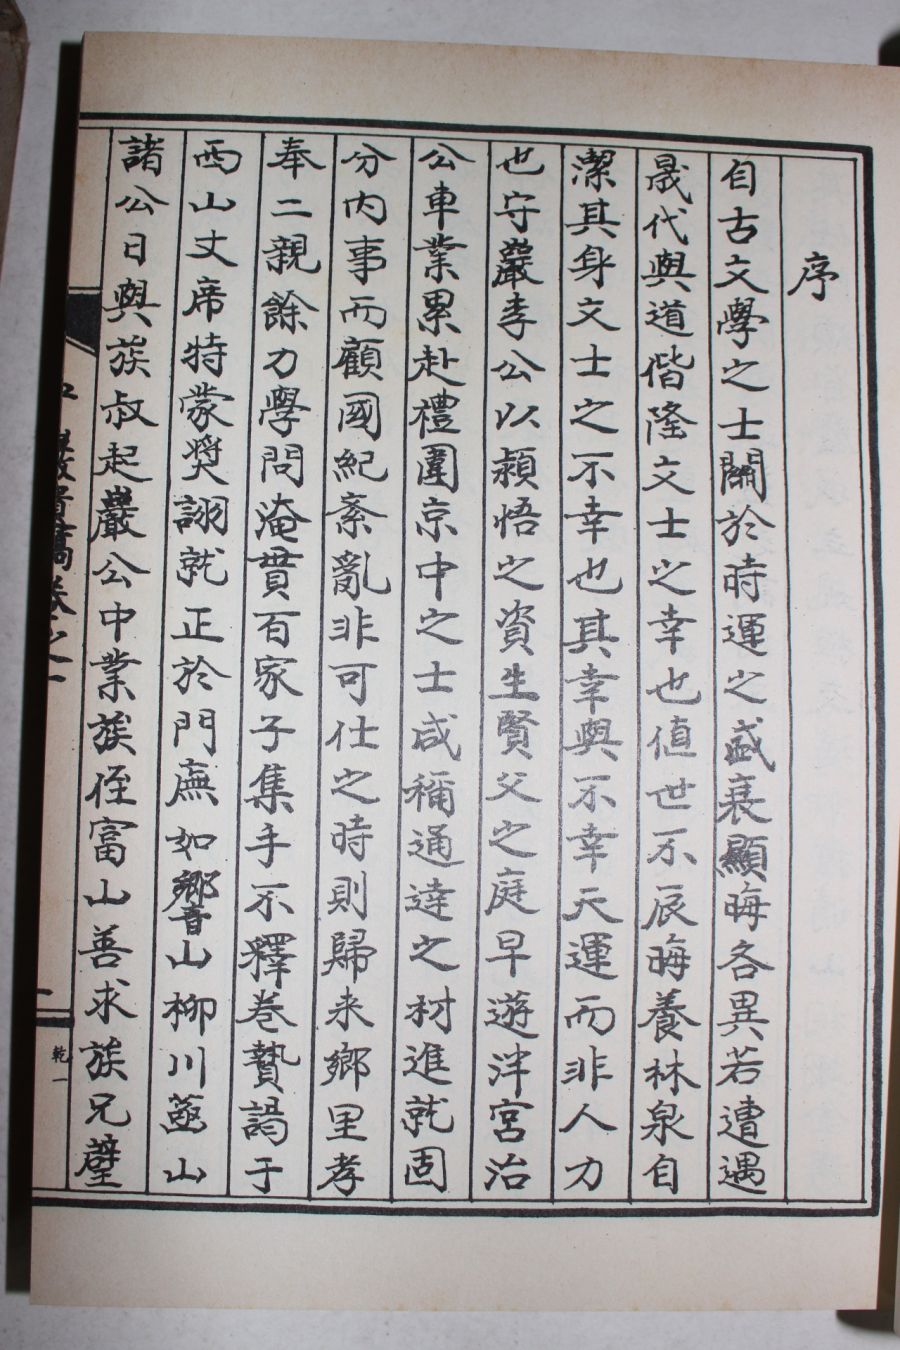 序
自古文學之士關於時運之盛衰顯晦各異若遭遇
晟代與道偕隆文士之幸也值世不辰晦養林泉自
潔其身文士之不幸也其幸與不幸天運而非人力
也守巖李公以穎悟之資生賢父之庭早遊泮宮治
公車業累赴禮圍京中之士咸稱通達之材進就固
分內事而顧國紀紊亂非可仕之時則歸来鄉里孝
奉二親餘力學問淹貫百家子集手不釋卷贄謁于
西山丈席特蒙奬詡就正於門廡如響山柳川蓝山
諸公日與族叔起巖公中業族侄富山善求族兄璧
守巖實稿卷之一
乾一